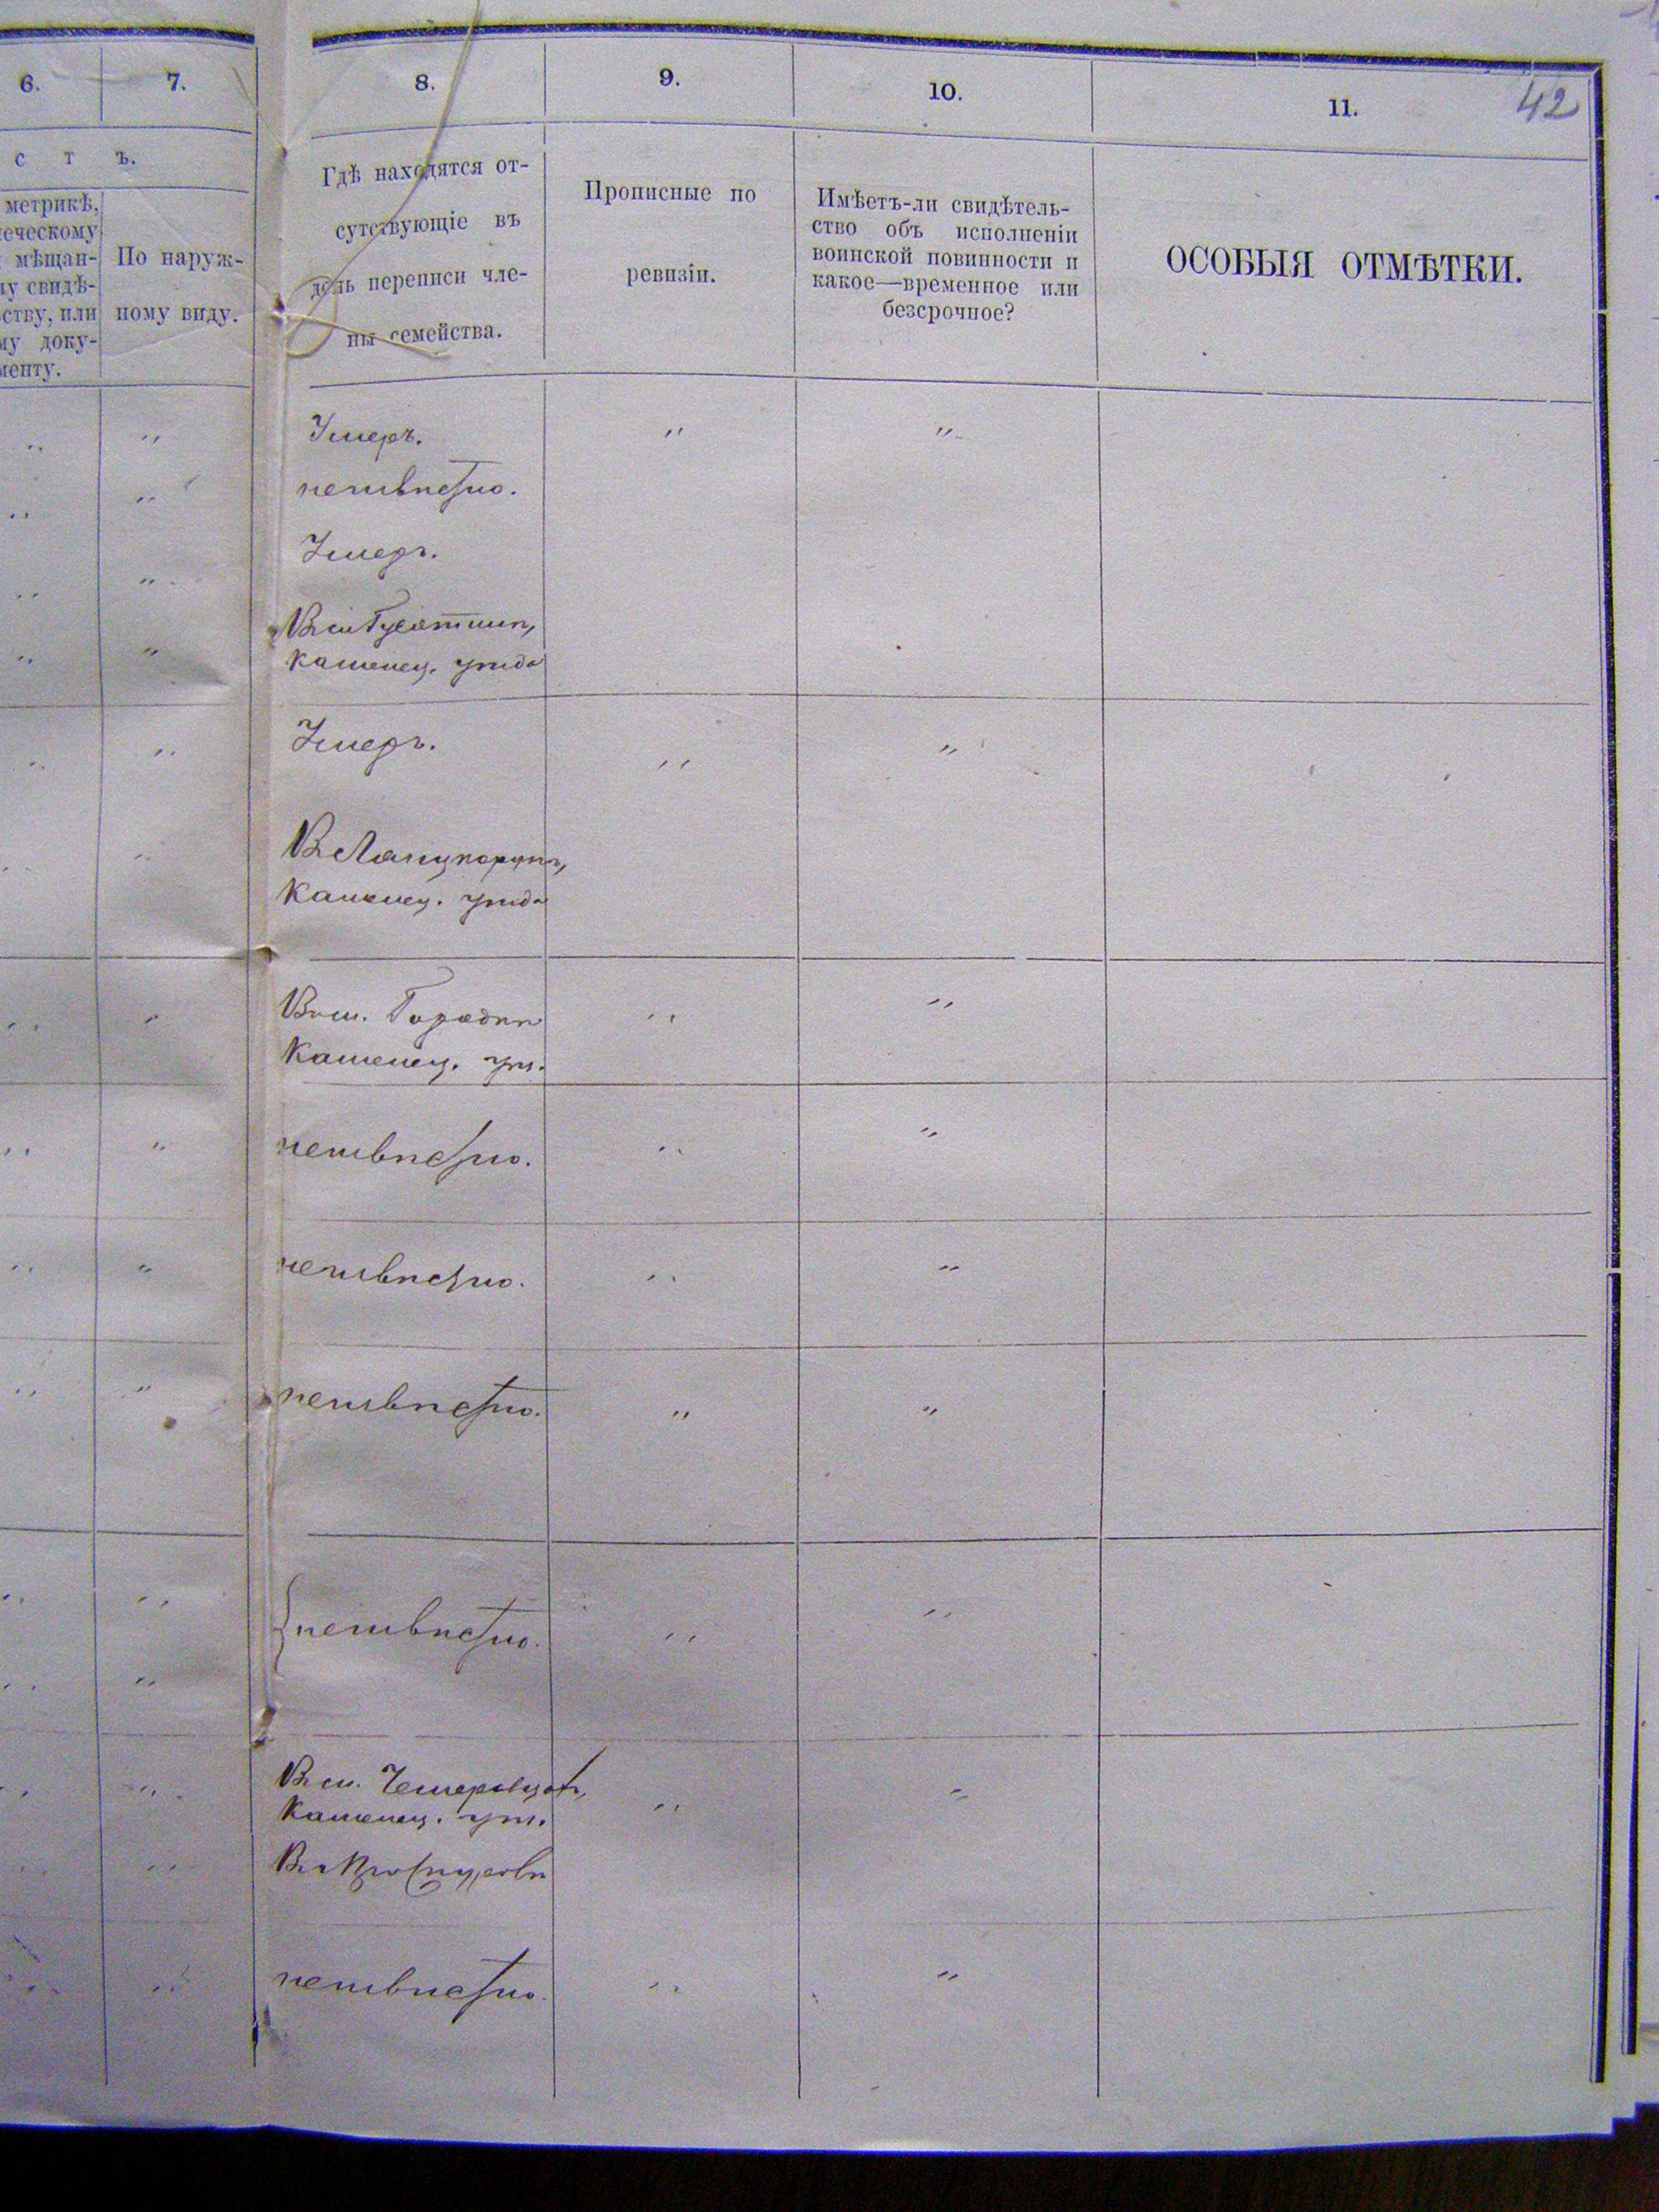 42
6. 7. 8. 9. 10. 11.
с т ъ.
метрикѣ,
еческому
мѣщан-
у свидѣ-
ству, или
у доку-
менту.
По наруж-
ному виду.
Гдѣ находятся от-
сутствующіе въ
день переписи чле-
ны семейства.
Прописные по
ревизіи.
Имѣетъ-ли свидѣтель-
ство объ исполненіи
воинской повинности и
какое—временное или
безсрочное?
ОСОБЫЯ ОТМѢТКИ.
Умеръ.
неизвѣстно.
Умеръ.
Въ м Гусятинѣ,
Каменец. уѣзда
Умеръ.
Въ Ланцкорунѣ,
Каменец. уѣзда
Въ м. Городкѣ
Каменец. уѣз.
неизвѣстно.
неизвѣстно.
неизвѣстно.
неизвѣстно.
Въ м. Чемеровцахъ,
Каменец. уѣз.
Въ г Проскуровѣ
неизвѣстно.